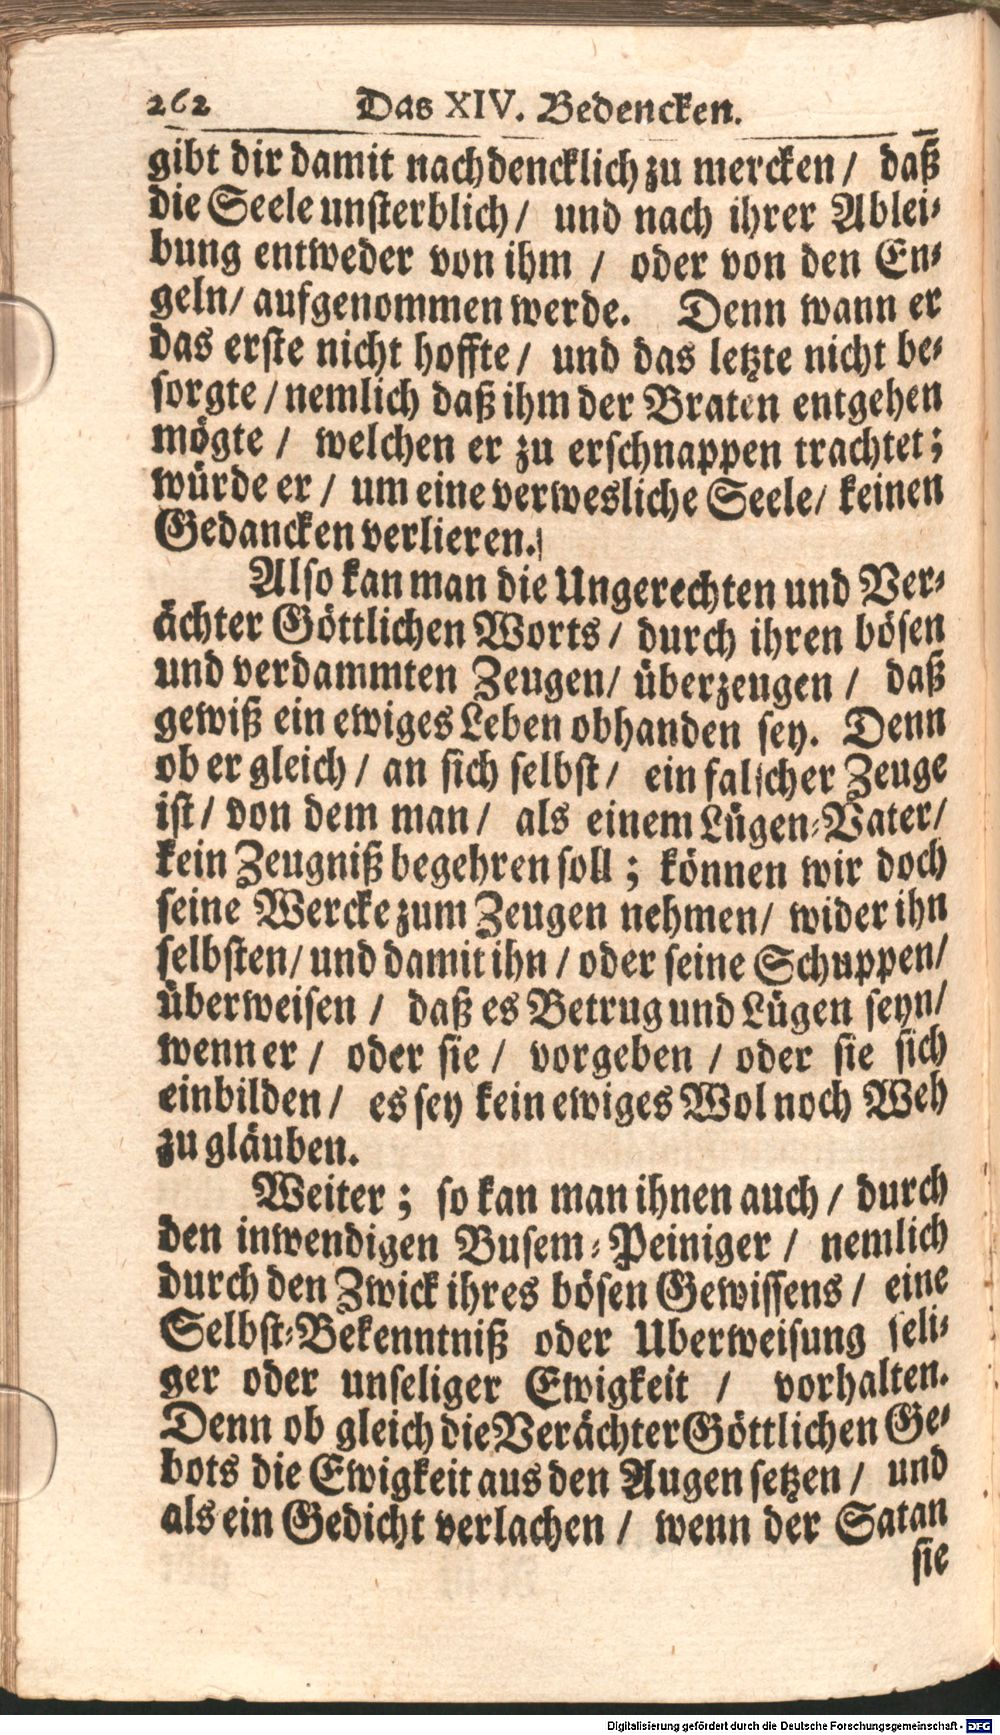 262 Das XIV. Bedencken.
gibt dir damit nachdencklich zu mercken / daß
die Seele unsterblich / und nach ihrer Ablei-
bung entweder von ihm / oder von den En-
geln / aufgenommen werde. Denn wann er
das erste nicht hoffte / und das letzte nicht be-
sorgte / nemlich daß ihm der Braten entgehen
mögte / welchen er zu erschnappen trachtet;
würde er / um eine verwesliche Seele / keinen
Gedancken verlieren.
Also kan man die Ungerechten und Ver-
ächter Göttlichen Worts / durch ihren bösen
und verdammten Zeugen / überzeugen / daß
gewiß ein ewiges Leben obhanden sey. Denn
ob er gleich / an sich selbst / ein falscher Zeuge
ist / von dem man / als einem Lügen-Vater /
kein Zeugniß begehren soll; können wir doch
seine Wercke zum Zeugen nehmen / wider ihn
selbsten / und damit ihn / oder seine Schuppen /
überweisen / daß es Betrug und Lügen seyn /
wenn er / oder sie / vorgeben / oder sie sich
einbilden / es sey kein ewiges Wol noch Weh
zu gläuben.
Weiter; so kan man ihnen auch / durch
den inwendigen Busem-Peiniger / nemlich
durch den Zwick ihres bösen Gewissens / eine
Selbst-Bekenntniß oder Uberweisung seli-
ger oder unseliger Ewigkeit / vorhalten.
Denn ob gleich die Verächter Göttlichen Ge-
bots die Ewigkeit aus den Augen setzen / und
als ein Gedicht verlachen / wenn der Satan
sie
Digitalisierung gefördert durch die Deutsche Forschungsgemeinschaft - DFG